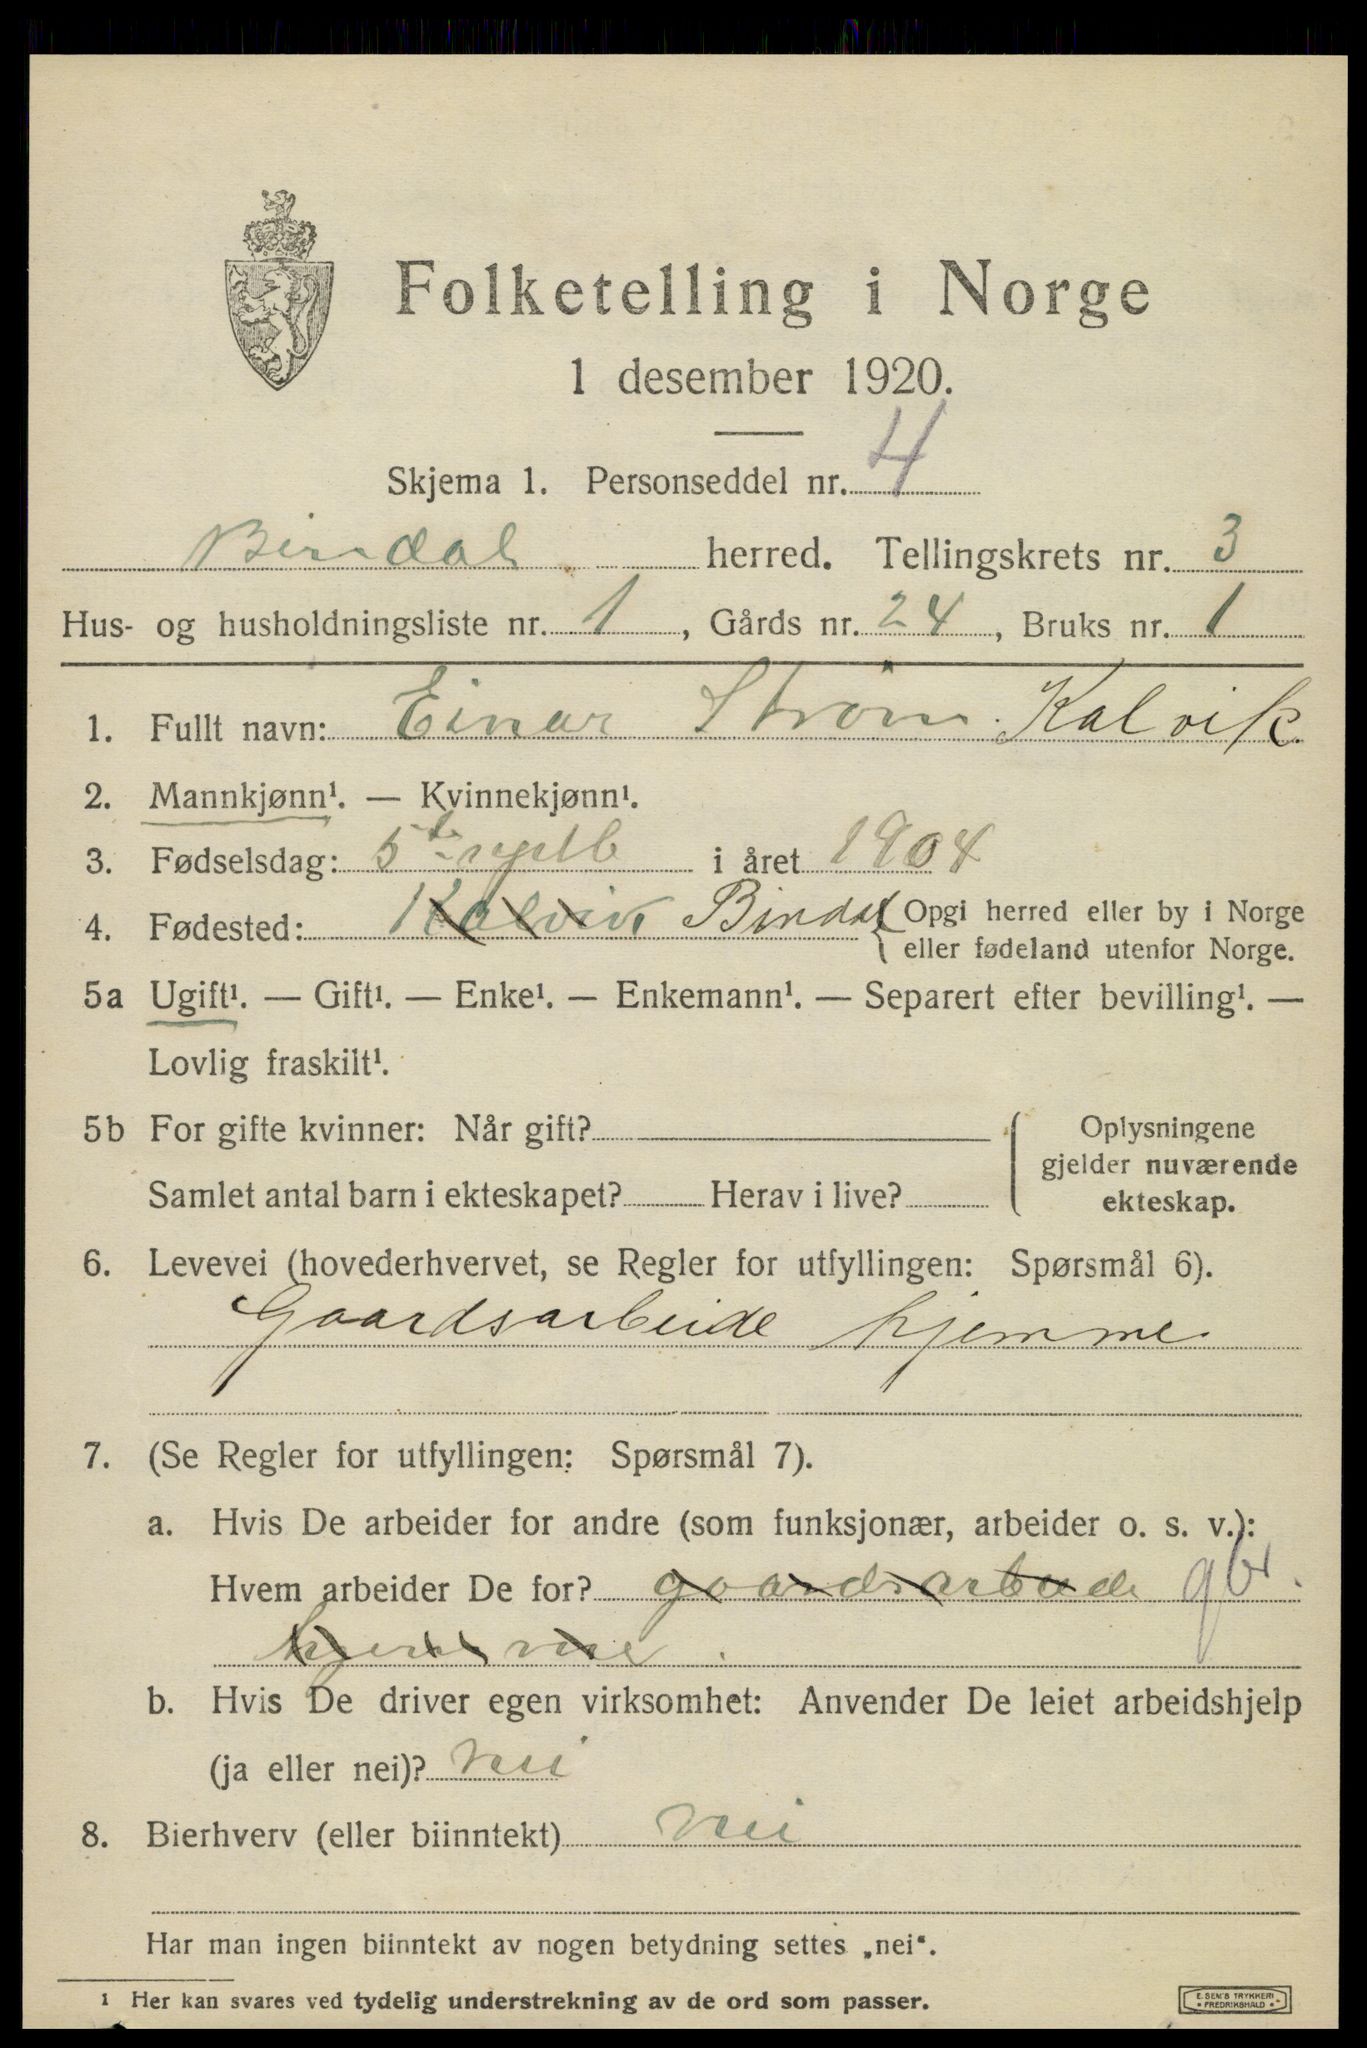 Folketelling i Norge
1 desember 1920.
Skjema 1. Personseddel nr. 4
Bindal herred. Tellingskrets nr. 3
Hus- og husholdningsliste nr. 1, Gårds nr. 24, Bruks nr. 1
1. Fullt navn: Einar Strøm Kalvik
2. Mannkjønn¹. — Kvinnekjønn¹.
3. Fødselsdag: 5te septb i året 1904
4. Fødested: Kalvik Bindal { Opgi herred eller by i Norge
eller fødeland utenfor Norge.
5a Ugift¹. — Gift¹. — Enke¹. — Enkemann¹. — Separert efter bevilling¹. —
Lovlig fraskilt¹.
5b For gifte kvinner: Når gift?
Samlet antal barn i ekteskapet? Herav i live?
Oplysningene
gjelder nuværende
ekteskap.
6. Levevei (hovederhvervet, se Regler for utfyllingen: Spørsmål 6).
Gaardsarbeide hjemme
7. (Se Regler for utfyllingen: Spørsmål 7).
a. Hvis De arbeider for andre (som funksjonær, arbeider o. s. v.):
Hvem arbeider De for? gaardsarbeide gbr.
hjemme.
b. Hvis De driver egen virksomhet: Anvender De leiet arbeidshjelp
(ja eller nei)? nei
8. Bierhverv (eller biinntekt) nei
Har man ingen biinntekt av nogen betydning settes „nei“.
¹ Her kan svares ved tydelig understrekning av de ord som passer.
E. SEM'S TRYKKERI
FREDRIKSHALD